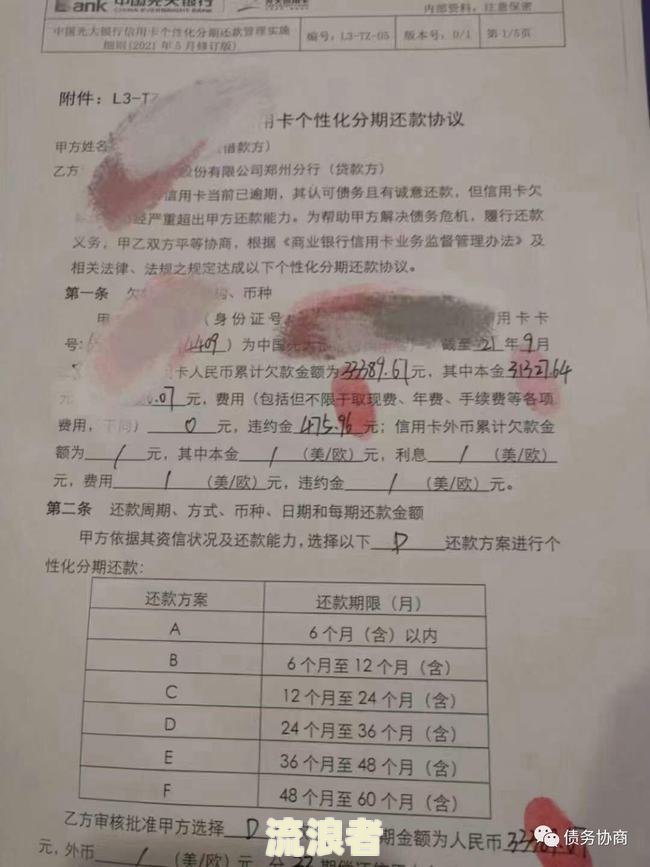 Bank 中国光大银行
CHINA EVERBRIGHT BANK
内部资料，注意保密
中国光大银行信用卡个性化分期还款管理实施
细则(2021年5月修订版)
编号：L3-TZ-05
版本号：D/1
第1/5页
附件：L3-TZ
用卡个性化分期还款协议
甲方姓名
借款方）
乙方
股份有限公司郑州分行（贷款方）
信用卡当前已逾期，其认可债务且有诚意还款，但信用卡欠
经严重超出甲方还款能力。为帮助甲方解决债务危机，履行还款
义务，甲乙双方平等协商，根据《商业银行信用卡业务监督管理办法》及
相关法律、法规之规定达成以下个性化分期还款协议。
第一条 欠
、币种
甲
（身份证号
用卡卡
号：
4409）为中国光大
截至21年9月
卡人民币累计欠款金额为33389.67元，其中本金31327.64
元
.07元，费用（包括但不限于取现费、年费、手续费等各项
费用，下同）0元，违约金475.96元；信用卡外币累计欠款金
额为/元，其中本金/（美/欧）元，利息/（美/欧）
元，费用/（美/欧）元，违约金/（美/欧）元。
第二条 还款周期、方式、币种、日期和每期还款金额
甲方依据其资信状况及还款能力，选择以下D还款方案进行个
性化分期还款：
还款方案 还款期限（月）
A 6个月（含）以内
B 6个月至12个月（含）
C 12个月至24个月（含）
D 24个月至36个月（含）
E 36个月至48个月（含）
F 48个月至60个月（含）
乙方审核批准甲方选择D
期金额为人民币33389.67
元，外币/（美/欧）元，分
流浪者
债务协商